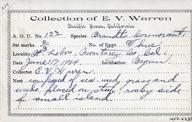 Collection of E. V. Warren
Pacific Grove, California
A. O. U. No. 122 Species Brandt's Cormorant
Set marks No. of Eggs Three
Lobos, Monterey Co. Cal.
Date June 17, 1904. Incubation Begun
Collector E. V. Warren
Nest composed of sea weed, grass and
placed on steep, rocky side
of small island.